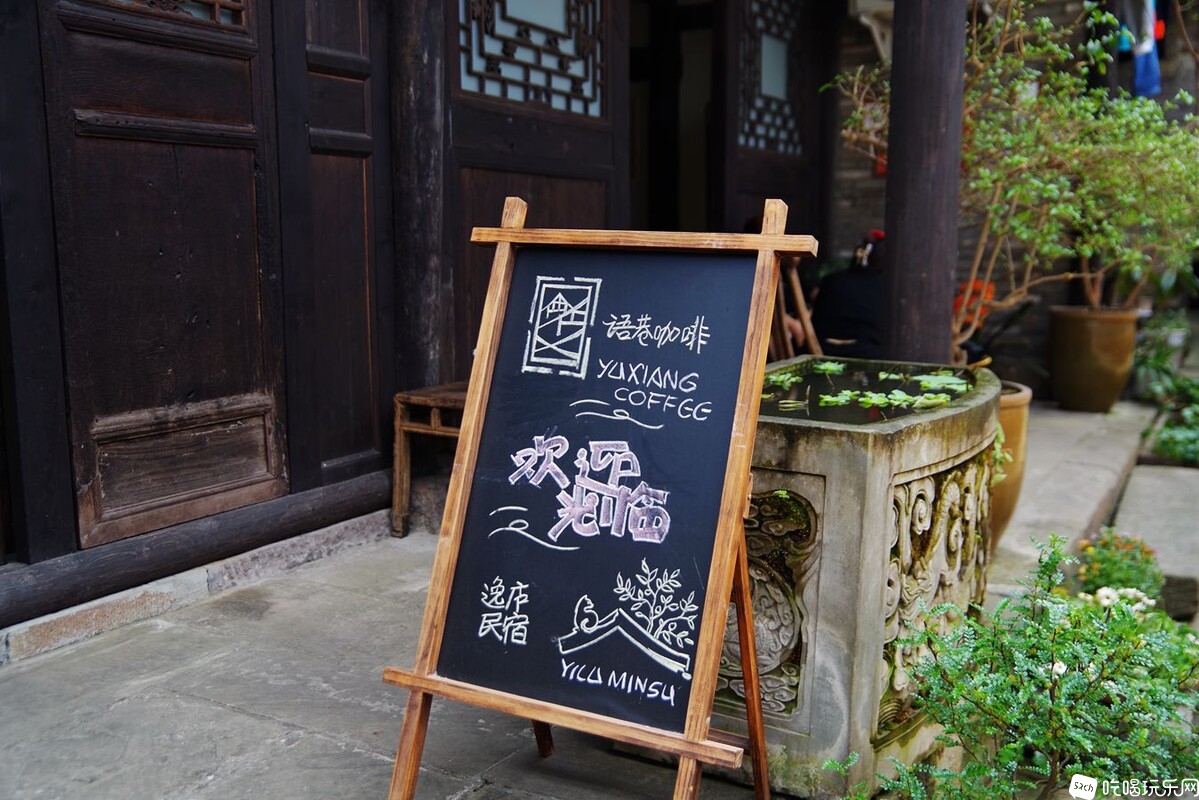 语巷咖啡
YUXIANG
COFFEE
欢迎
光临
逸庐
民宿
YILU MINSU
Sach 吃喝玩乐网